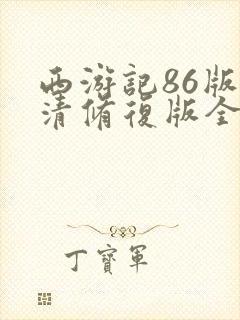 西游記86版
清脩復版全
丁寶軍